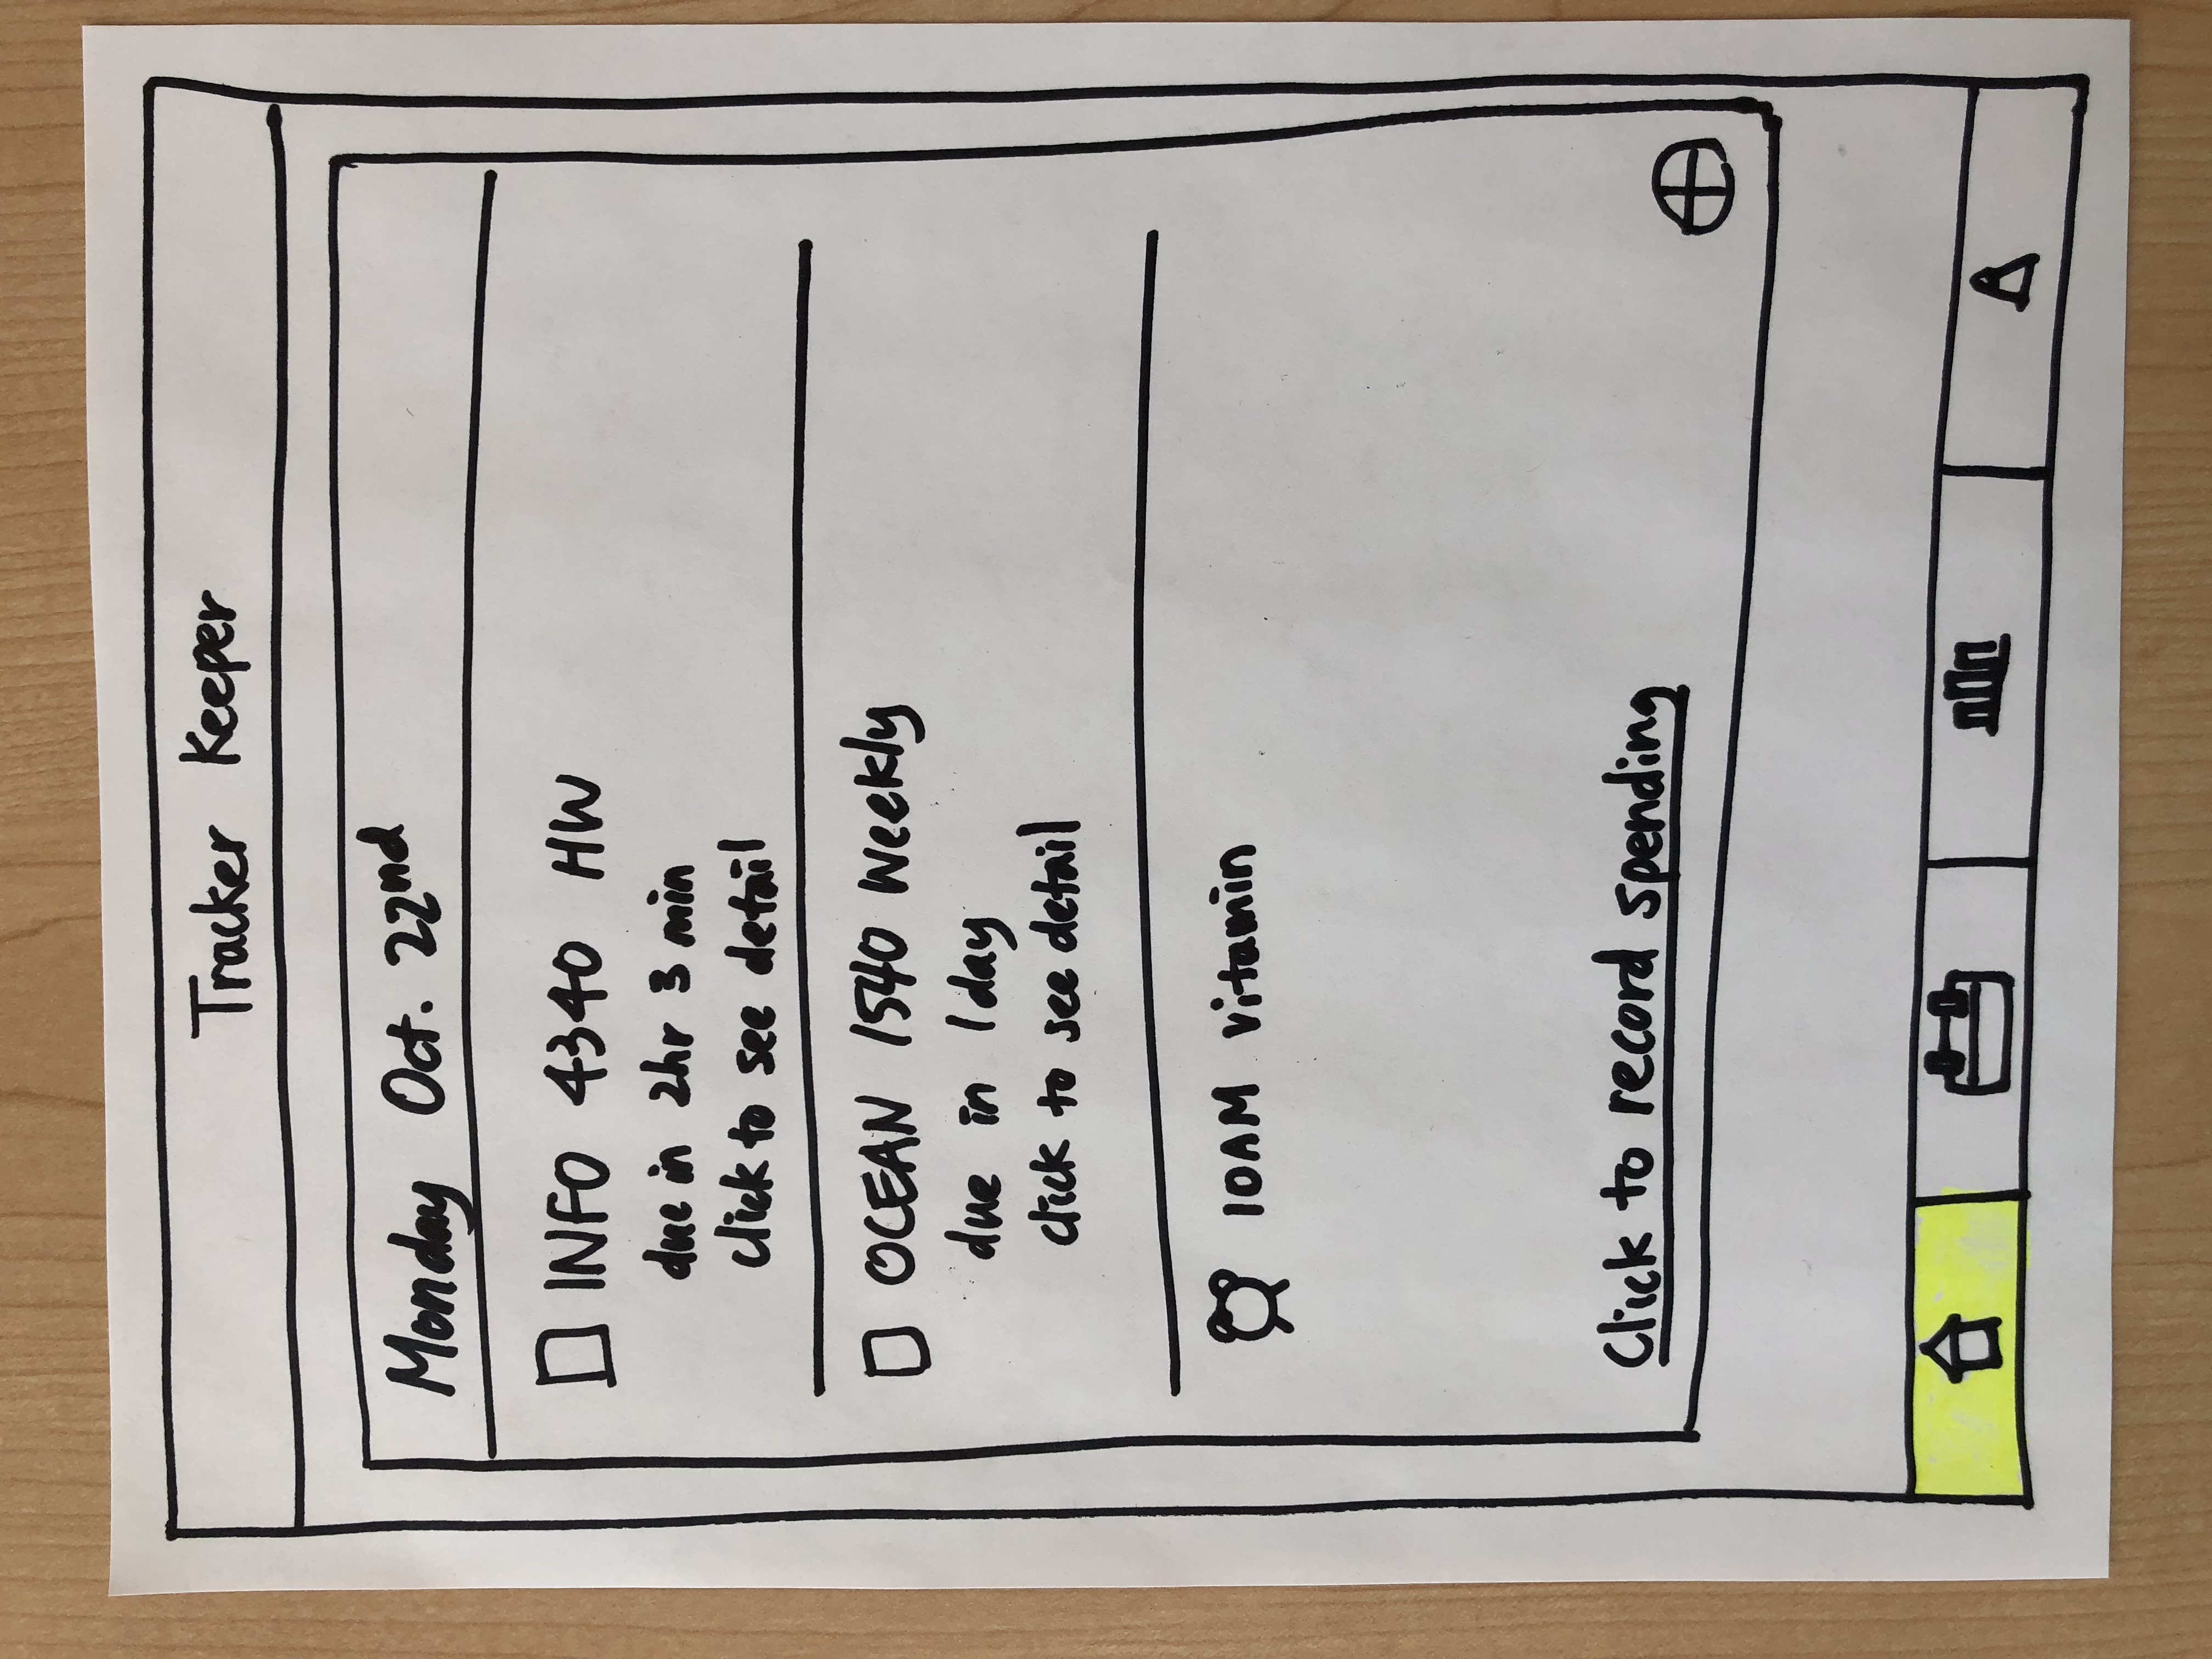 Tracker Keeper
Monday Oct. 22nd
INFO 4340 HW
due in 2hr 3 min
click to see detail
OCEAN 1540 Weekly
due in 1day
click to see detail
10AM vitamin
Click to record spending